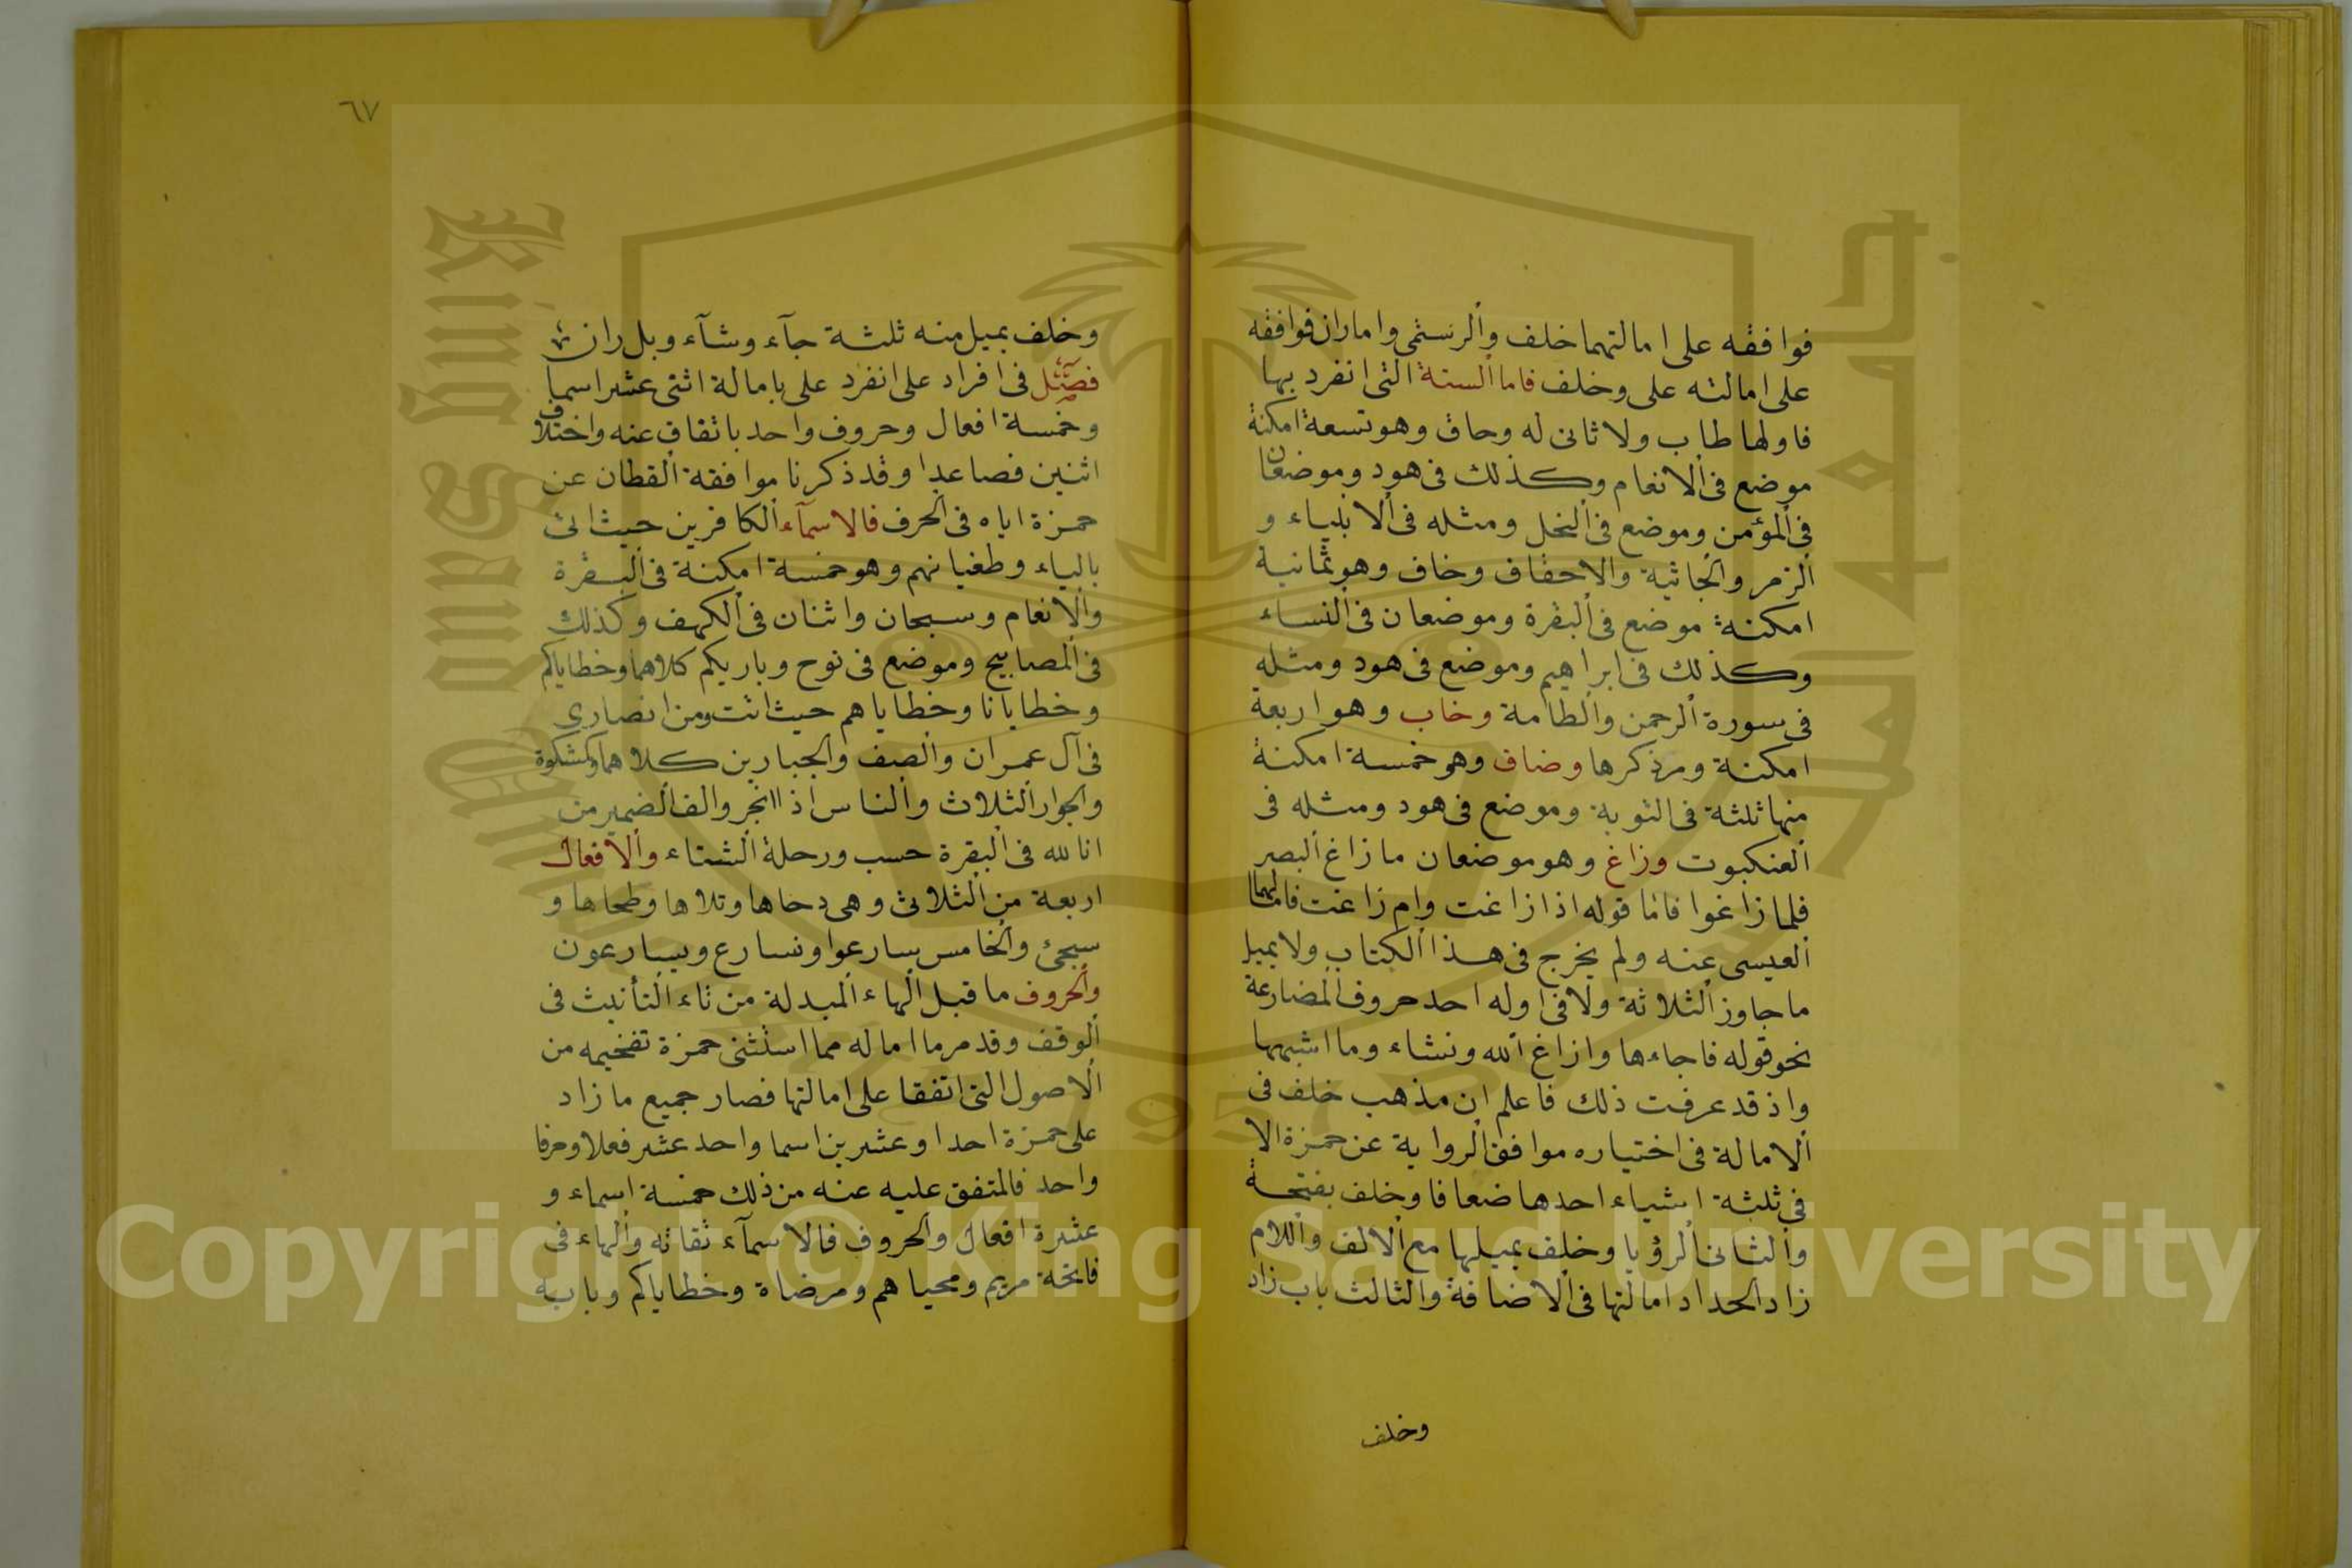 فوافقه على امالتهما خلف والرستمى واما ران فوافقه
على امالته على وخلف فاما الستة التى انفرد بها
فاولها طاب ولا ثانى له وحاق وهو تسعة امكنة
موضع فى الانعام وكذلك فى هود وموضعان
فى المؤمن وموضع فى النحل ومثله فى الانبياء و
الزمر والجاثية والاحقاف وخاف وهو ثمانية
امكنة موضع فى البقرة وموضعان فى النساء
وكذلك فى ابراهيم وموضع فى هود ومثله
فى سورة الرحمن والطامة وخاب وهو اربعة
امكنة ومر ذكرها وضاق وهو خمسة امكنة
منها ثلثة فى التوبة وموضع فى هود ومثله فى
العنكبوت وزاغ وهو موضعان ما زاغ البصر
فلما زاغوا فاما قوله اذ زاغت وام زاغت فامالهما
العبسى عنه ولم يخرج فى هذا الكتاب ولا يميل
ما جاوز الثلاثة ولا فى اوله احد حروف المضارعة
نحو قوله فاجاءها وازاغ الله ونشاء وما اشبهها
واذ قد عرفت ذلك فاعلم ان مذهب خلف فى
الامالة فى اختياره موافق الرواية عن حمزة الا
فى ثلثة اشياء احدها ضعافا وخلف بفتحه
والثانى الرؤيا وخلف يميلها مع الالف واللام
زاد الحداد امالتها فى الاضافة والثالث باب زاد
وخلف
٦٧
وخلف يميل منه ثلثة جآء وشآء وبل ران
فصل فى افراد على انفرد على بامالة اثنى عشر اسما
وخمسة افعال وحروف واحد باتفاق عنه واختلاف
اثنين فصاعدا وقد ذكرنا موافقة القطان عن
حمزة اياه فى الحرف فالاسمآء الكافرين حيث اتى
بالياء وطغيانهم وهو خمسة امكنة فى البقرة
والانعام وسبحان واثنان فى الكهف وكذلك
فى المصابيح وموضع فى نوح وباريكم كلاهما وخطاياكم
وخطايانا وخطاياهم حيث اتت ومن انصارى
فى آل عمران والصف والجبارين كلاهما وكمشكوة
والجوار الثلاث والناس اذا انجر والف الضمير من
انا لله فى البقرة حسب ورحلة الشتاء والافعال
اربعة من الثلاثى وهى دحاها وتلاها وطحاها و
سجى والخامس سارعوا ونسارع ويسارعون
والحروف ما قبل الهاء المبدلة من تاء التأنيث فى
الوقف وقد مر ما اماله مما استثنى حمزة تفخيمه من
الاصول التى اتفقا على امالتها فصار جميع ما زاد
على حمزة احدا وعشرين اسما واحد عشر فعلا وحرفا
واحد فالمتفق عليه عنه من ذلك خمسة اسماء و
عشرة افعال والحروف فالاسمآء تقاته والهاء فى
فاتحة مريم ومحياهم ومرضاة وخطاياكم وبابيه
Copyright © King Saud University